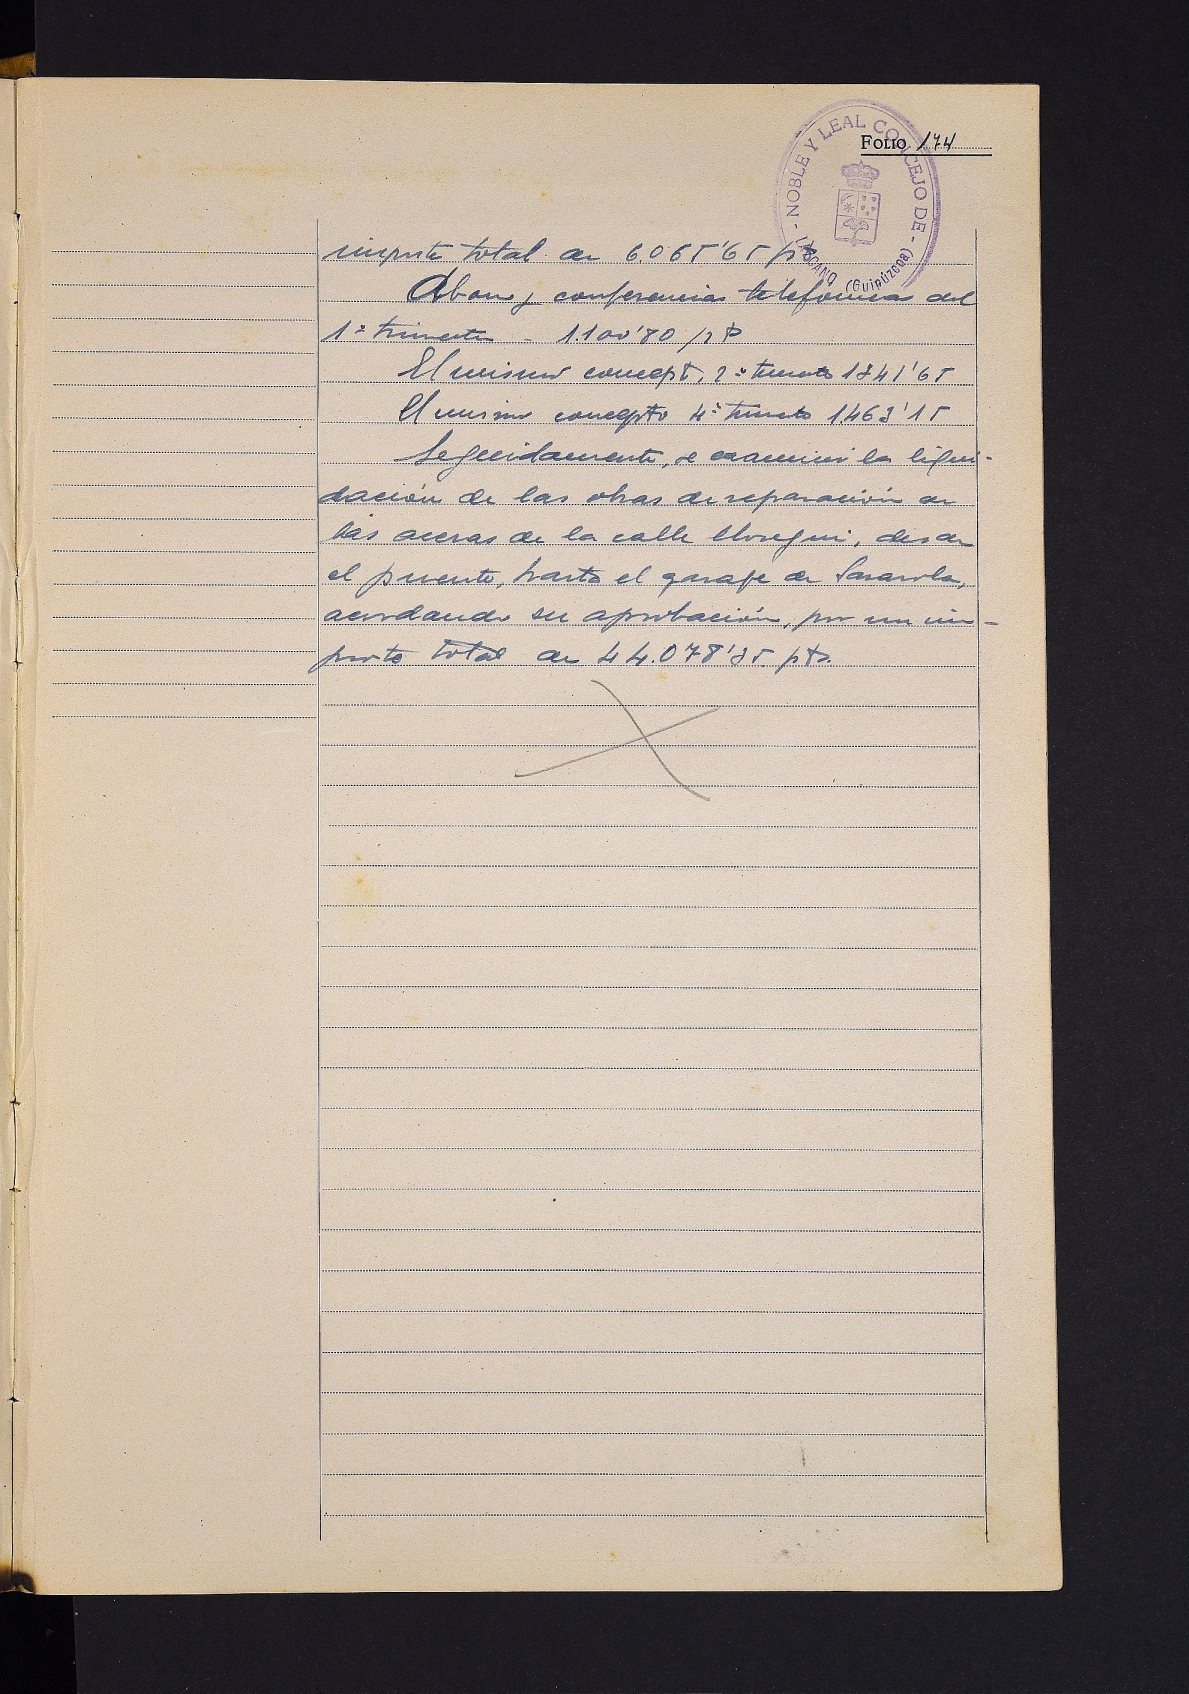 Folio 174
- NOBLE Y LEAL CONCEJO DE - LAZCANO (Guipúzcoa)
importe total de 6.065'65 pts
Abono y conferencias telefónicas del
1º trimestre - 1.100'80 pts
El mismo concepto, 2º trimestre 1841'65
El mismo concepto 4º trimestre 1.463'15
Seguidamente, se examinó la liqui-
dación de las obras de reparación de
las aceras de la calle Elosegui, desde
el puente, hasta el garaje de
acordando su aprobación, por un im-
porte total de 44.078'35 pts.